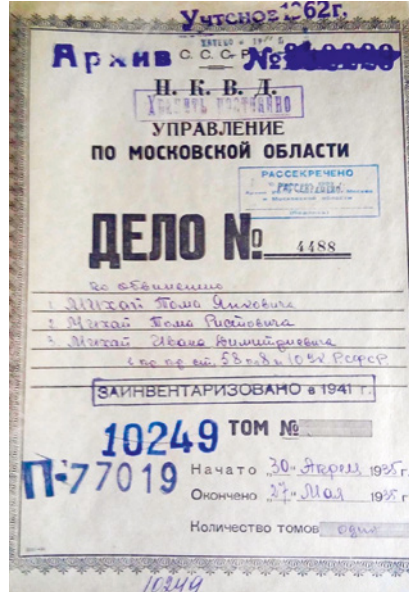 Учтено 1962г.
Архив С.С.С.Р. №
Н. К. В. Д.
Хранить постоянно
УПРАВЛЕНИЕ
ПО МОСКОВСКОЙ ОБЛАСТИ
РАССЕКРЕЧЕНО
и Московской области
ДЕЛО № 4488
по обвинению
1. Михай Тома Янковича
2. Михай Тома Ристовича
3. Михай Ивана Димитриевича
ст. 58 п. 8 и 10 УК РСФСР
ЗАИНВЕНТАРИЗОВАНО в 1941 г.
10249 ТОМ №
П-77019
Начато „30" Апреля 1935 г.
Окончено „27" Мая 1935 г.
Количество томов один
10249